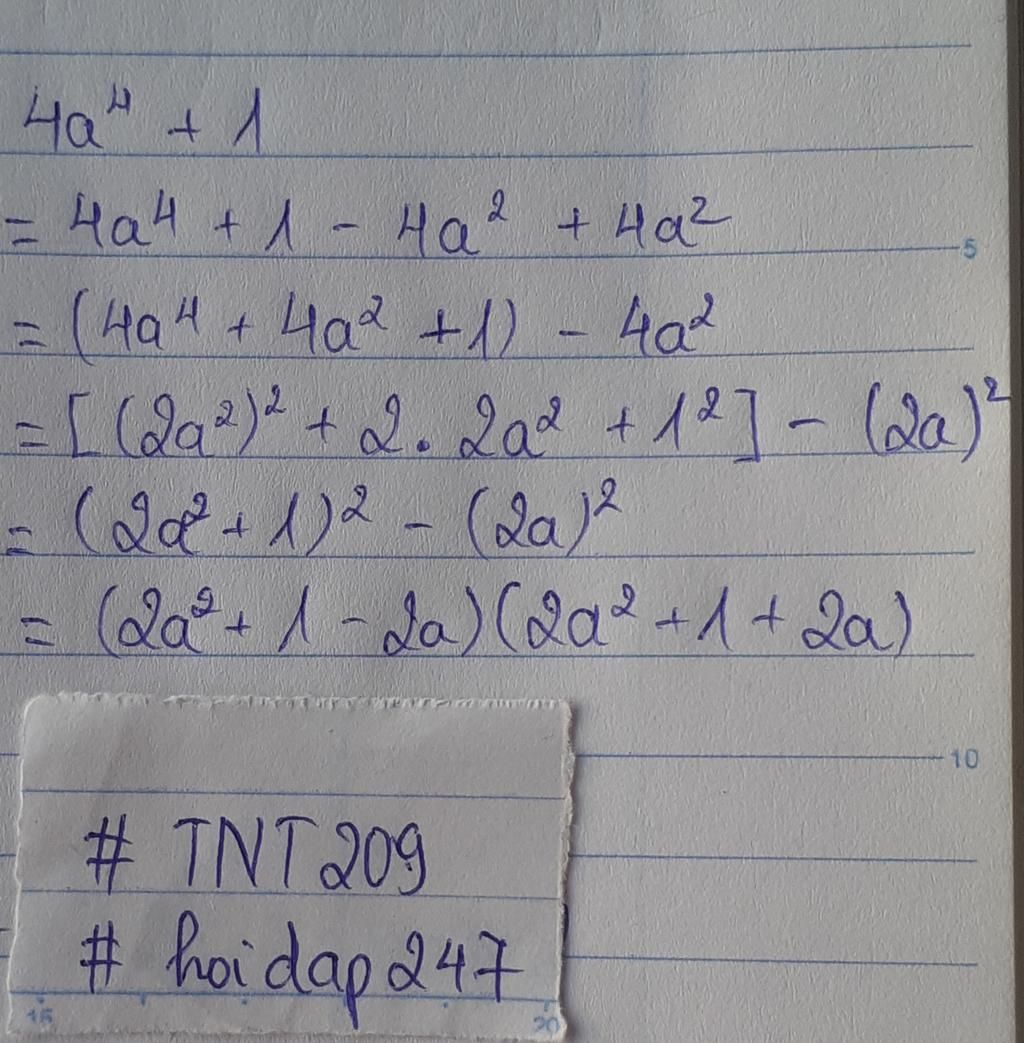 4a⁴ + 1
= 4a⁴ + 1 - 4a² + 4a²
5
= (4a⁴ + 4a² + 1) - 4a²
= [(2a²)² + 2. 2a² + 1²] - (2a)²
= (2a² + 1)² - (2a)²
= (2a² + 1 - 2a)(2a² + 1 + 2a)
10
# TNT209
# hoidap247
15 20